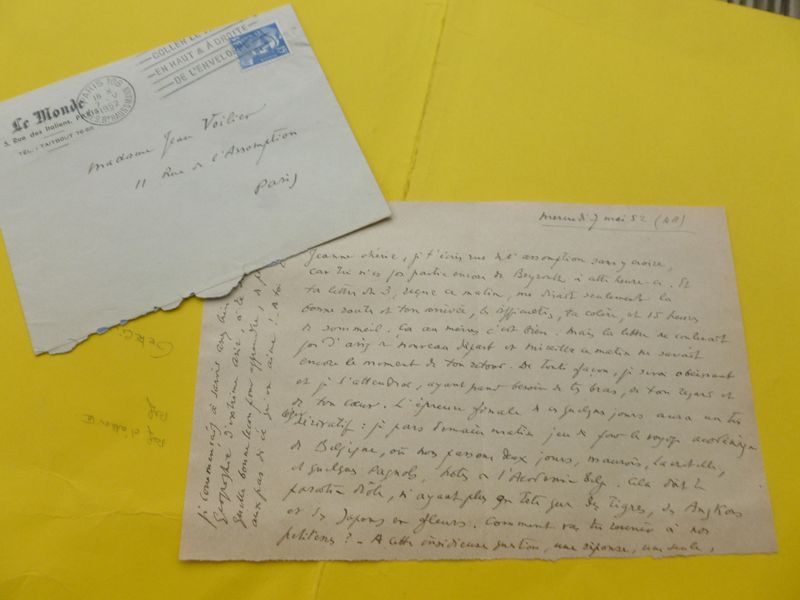 COLLER LE
EN HAUT & À DROITE
DE L'ENVELOPPE
PARIS 108
18 H
7 - V
1952
Le Monde
5, Rue des Italiens, PARIS
TÉL. : TAITBOUT
Madame Jean Voilier
11 Rue de l'Assomption
Paris
mercredi 7 mai 52
Jeanne chérie, je t'écris rue de l'assomption sans y croire,
car tu n'es pas partie encore de Beyrouth à cette heure-ci. Et
ta lettre du 3, reçue ce matin, me disait seulement la
bonne santé et ton arrivée, les difficultés, ta colère, et 15 heures
de sommeil. c'est bien. mais la lettre ne contenait
pas d'avis de nouveau départ et ce matin ne savait
encore le moment de ton retour. De toute façon, je serai obéissant
et je t'attendrai, ayant besoin de tes bras, de ton regard et
de ton cœur. L'épreuve finale de ces quelques jours aura un
dérivatif : je pars demain matin jeudi pour le voyage académique
de Belgique, où nous passons deux jours, maurois, Lacretelle,
et quelques Pagnols, hôtes de l'Académie Belge. Cela doit te
paraître drôle, n'ayant plus en tête que des Tigres, des Angkors
et des Japons en fleurs. Comment vas-tu revenir à nos
petitesses ? - A cette insidieuse question, une réponse, une seule,
je commençais à savoir
Géographie d'extrême asie
Quelle bonne leçon pour apprendre
aux pas de ce qu'on aime !